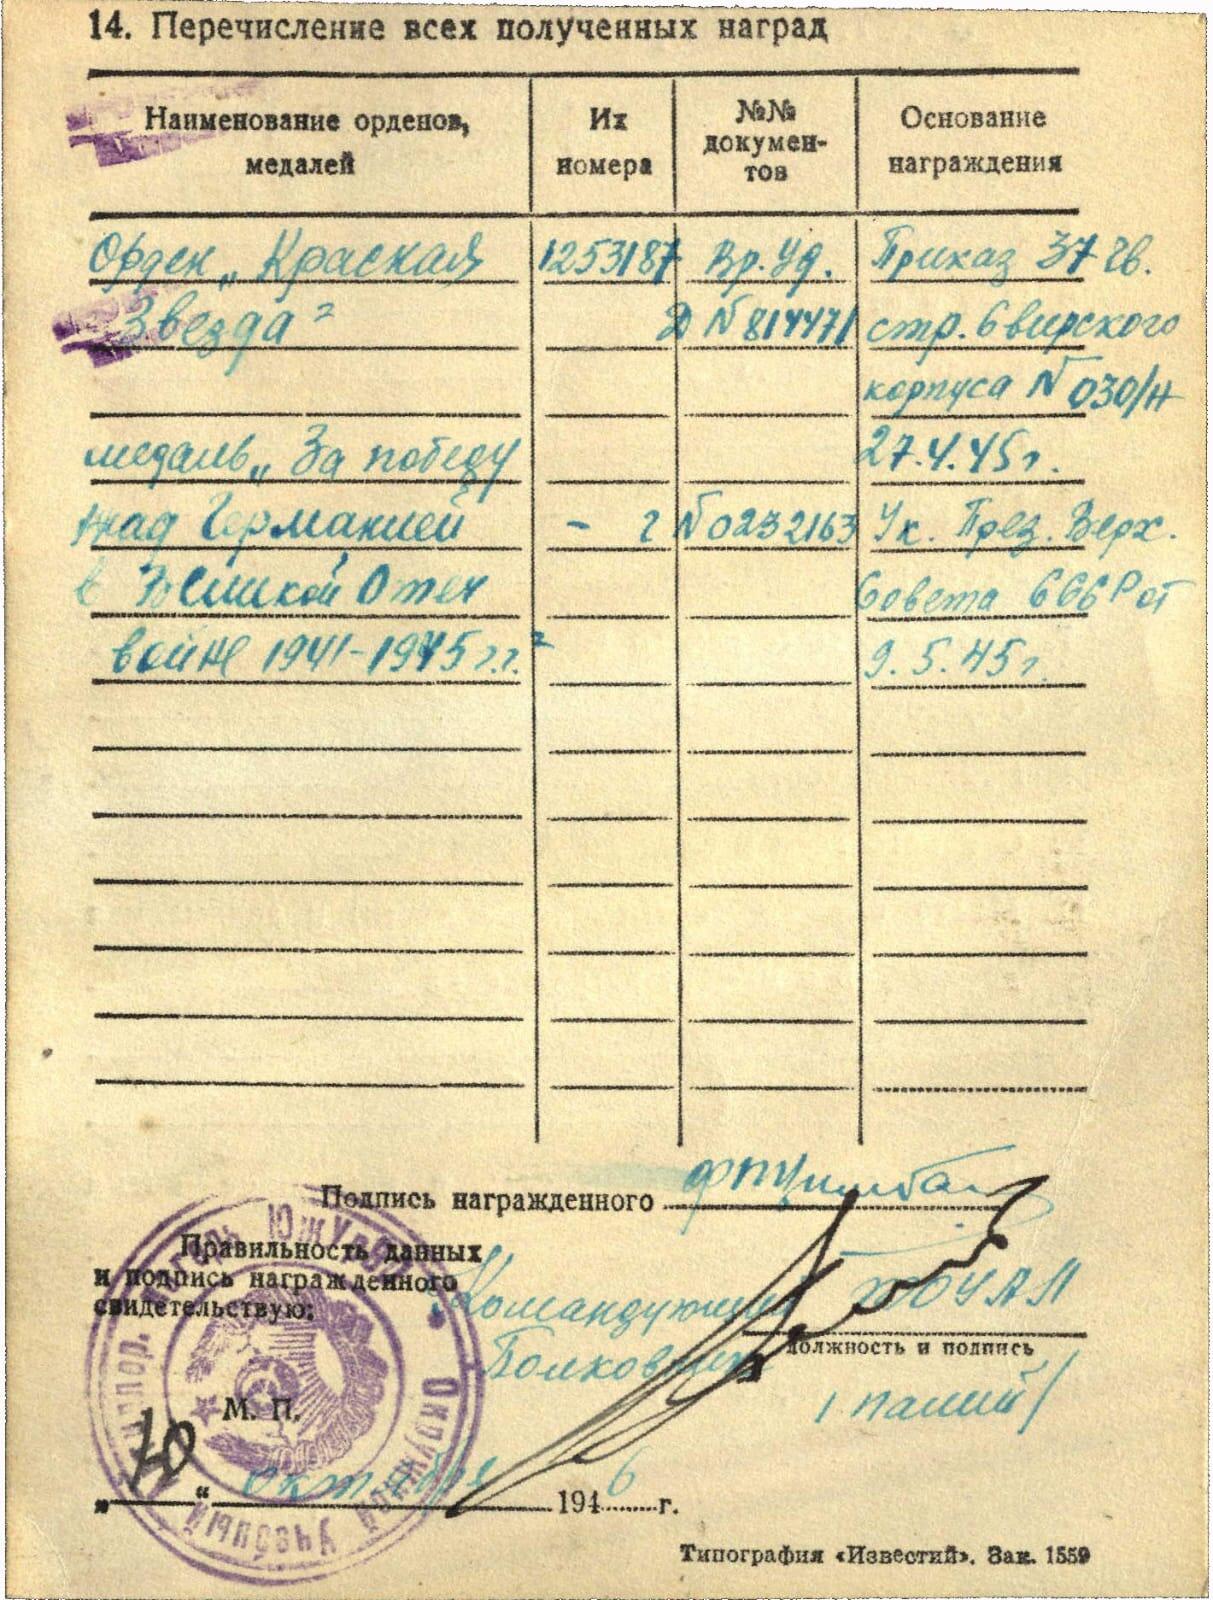 14. Перечисление всех полученных наград
Наименование орденов, медалей | Их номера | №№ докумен-тов | Основание награждения
Орден „Красная | 1253187 | Вр. Уд. | Приказ 37 Гв.
Звезда" | Д № 814471 | стр. Свирского
корпуса № 030/н
медаль „За победу | 27.4.45 г.
над Германией | - | № 0232163 | Ук. През. Верх.
в Великой Отеч | Совета СССР от
войне 1941-1945 г.г." | 9.5.45 г.
Подпись награжденного
Правильность данных
и подпись награжденного
свидетельствую:
Командующий
Полковник
должность и подпись
М. П.
„10“ октября 1946 г.
Окружной Учебный
Типография «Известий». Зак. 1559